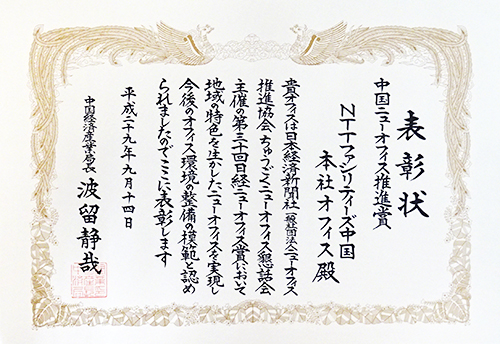 表彰状
中国ニューオフィス推進賞
NTTファシリティーズ中国
本社オフィス殿
貴オフィスは日本経済新聞社 一般社団法人ニューオフィス
推進協会 ちゅうごくニューオフィス懇話会
主催の第三十回日経ニューオフィス賞において
地域の特色を生かしたニューオフィスを実現し
今後のオフィス環境の整備の模範と認め
られましたのでここに表彰します
平成二十九年九月十四日
中国経済産業局長 波留静哉